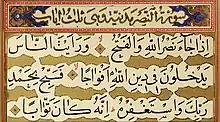 سورة النصر مدنية وهي ثلاث آيات
إِذَا جَاءَ نَصْرُ اللَّهِ وَالْفَتْحُ وَرَأَيْتَ النَّاسَ
يَدْخُلُونَ فِي دِينِ اللَّهِ أَفْوَاجًا فَسَبِّحْ بِحَمْدِ
رَبِّكَ وَاسْتَغْفِرْهُ إِنَّهُ كَانَ تَوَّابًا